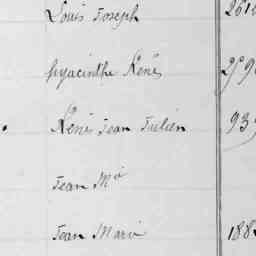 Louis Joseph
hyacinthe René
René Jean Julien 939
Jean Mie
Jean Marie 188